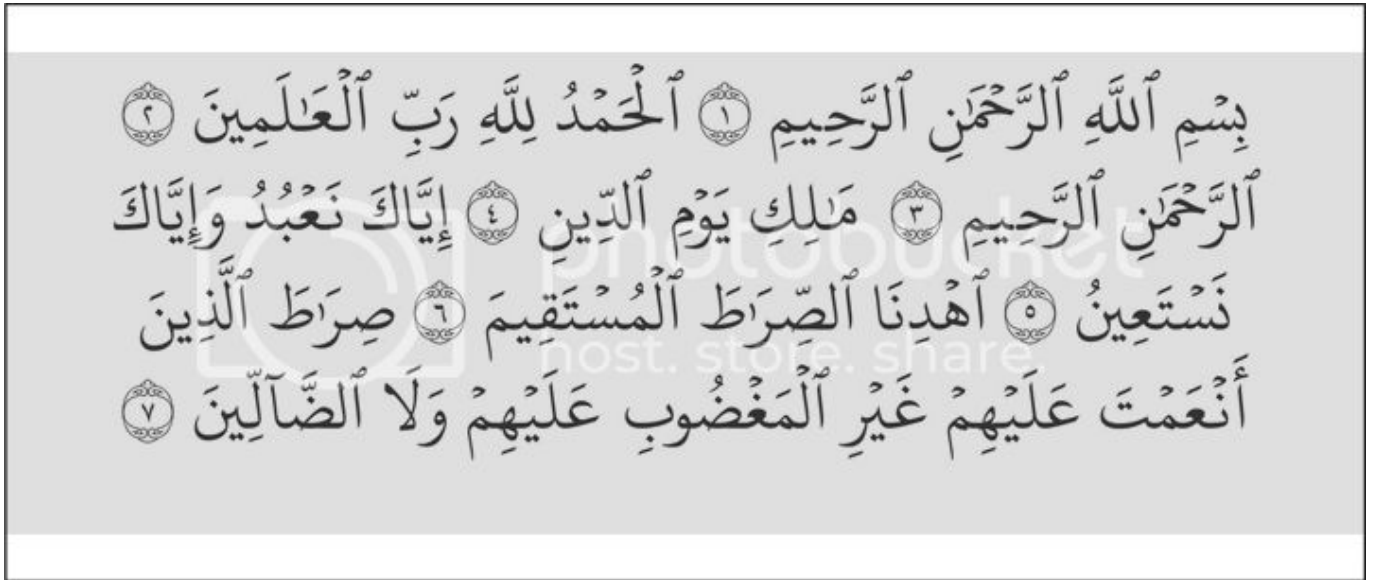 بِسْمِ ٱللَّهِ ٱلرَّحْمَٰنِ ٱلرَّحِيمِ ۝١ ٱلْحَمْدُ لِلَّهِ رَبِّ ٱلْعَٰلَمِينَ ۝٢
ٱلرَّحْمَٰنِ ٱلرَّحِيمِ ۝٣ مَٰلِكِ يَوْمِ ٱلدِّينِ ۝٤ إِيَّاكَ نَعْبُدُ وَإِيَّاكَ
نَسْتَعِينُ ۝٥ ٱهْدِنَا ٱلصِّرَٰطَ ٱلْمُسْتَقِيمَ ۝٦ صِرَٰطَ ٱلَّذِينَ
أَنْعَمْتَ عَلَيْهِمْ غَيْرِ ٱلْمَغْضُوبِ عَلَيْهِمْ وَلَا ٱلضَّآلِّينَ ۝٧
photobucket
host. store. share.